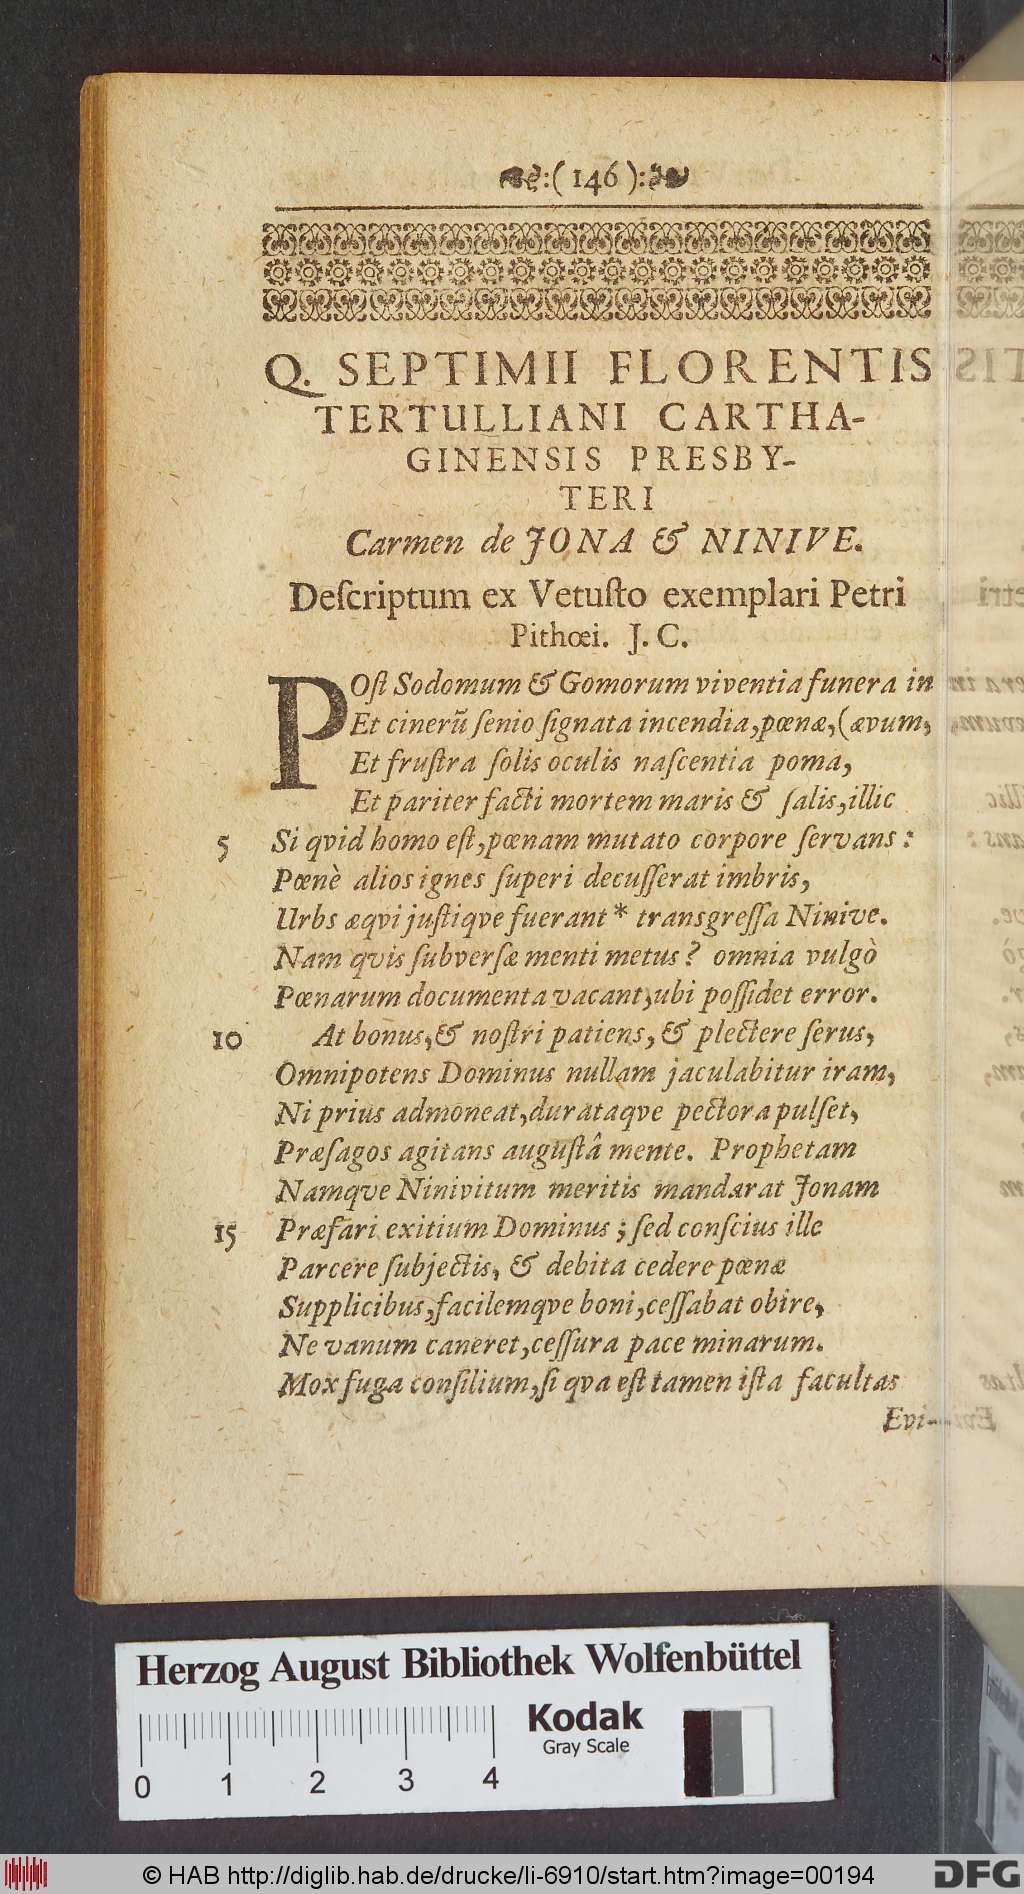 :( 146 ):
Q. SEPTIMII FLORENTIS
TERTULLIANI CARTHA-
GINENSIS PRESBY-
TERI
Carmen de JONA & NINIVE.
Deſcriptum ex Vetuſto exemplari Petri
Pithœi. J. C.
POſt Sodomum & Gomorum viventia funera in
Et cinerũ ſenio ſignata incendia, pœnæ, (ævum,
Et fruſtra ſolis oculis naſcentia poma,
Et pariter facti mortem maris & ſalis, illic
5 Si qvid homo eſt, pœnam mutato corpore ſervans:
Pœnè alios ignes ſuperi decuſſerat imbris,
Urbs æqvi juſtiqve fuerant * transgreſſa Ninive.
Nam qvis ſubverſæ menti metus? omnia vulgò
Pœnarum documenta vacant, ubi poſſidet error.
10 At bonus, & noſtri patiens, & plectere ſerus,
Omnipotens Dominus nullam jaculabitur iram,
Ni prius admoneat, durataqve pectora pulſet,
Præſagos agitans auguſtâ mente. Prophetam
Namqve Ninivitum meritis mandarat Jonam
15 Præfari exitium Dominus; ſed conſcius ille
Parcere ſubjectis, & debita cedere pœnæ
Supplicibus, facilemqve boni, ceſſabat obire,
Ne vanum caneret, ceſſura pace minarum.
Mox fuga conſilium, ſi qva eſt tamen iſta facultas
Evi-
Herzog August Bibliothek Wolfenbüttel
Kodak
Gray Scale
0 1 2 3 4
© HAB http://diglib.hab.de/drucke/li-6910/start.htm?image=00194
DFG